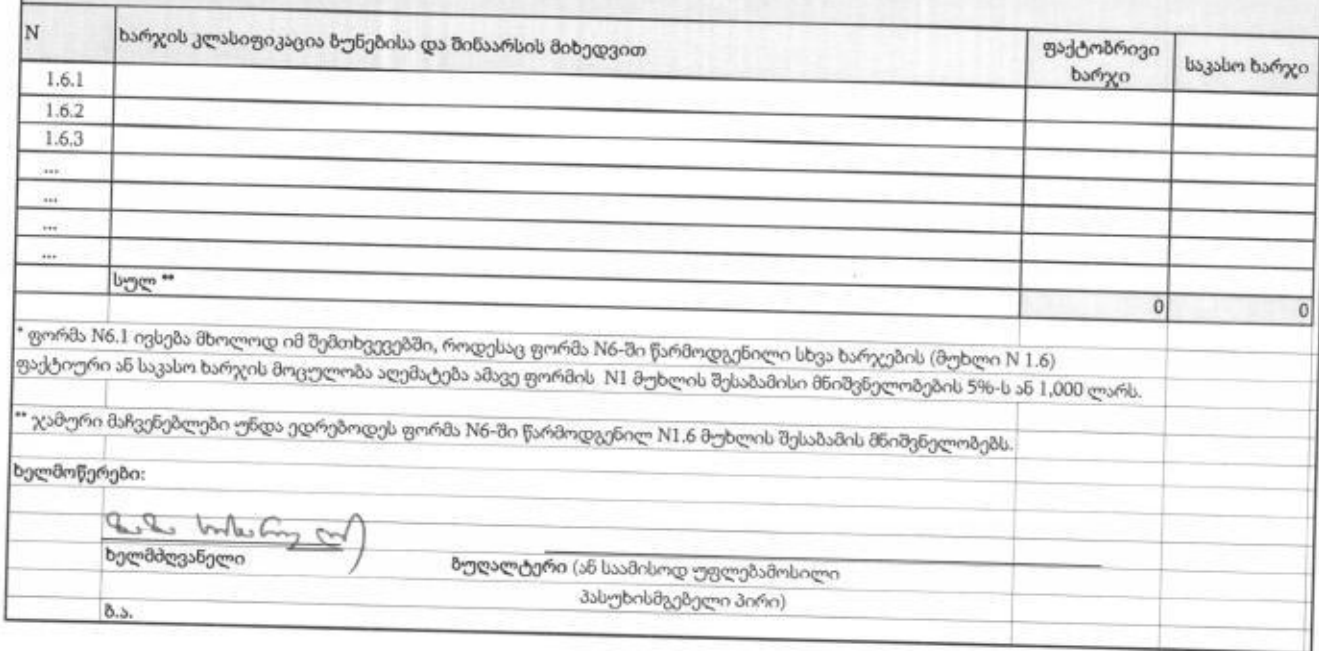 N ხარჯის კლასიფიკაცია ბუნებისა და შინაარსის მიხედვით ფაქტობრივი ხარჯი საკასო ხარჯი
1.6.1
1.6.2
1.6.3
...
...
...
...
სულ ** 0 0
* ფორმა N6.1 ივსება მხოლოდ იმ შემთხვევებში, როდესაც ფორმა N6-ში წარმოდგენილი სხვა ხარჯების (მუხლი N 1.6)
ფაქტიური ან საკასო ხარჯის მოცულობა აღემატება ამავე ფორმის N1 მუხლის შესაბამისი მნიშვნელობების 5%-ს ან 1,000 ლარს.
** ჯამური მაჩვენებლები უნდა ედრებოდეს ფორმა N6-ში წარმოდგენილ N1.6 მუხლის შესაბამის მნიშვნელობებს.
ხელმოწერები:
ხელმძღვანელი
ბუღალტერი (ან საამისოდ უფლებამოსილი
პასუხისმგებელი პირი)
ბ.ა.